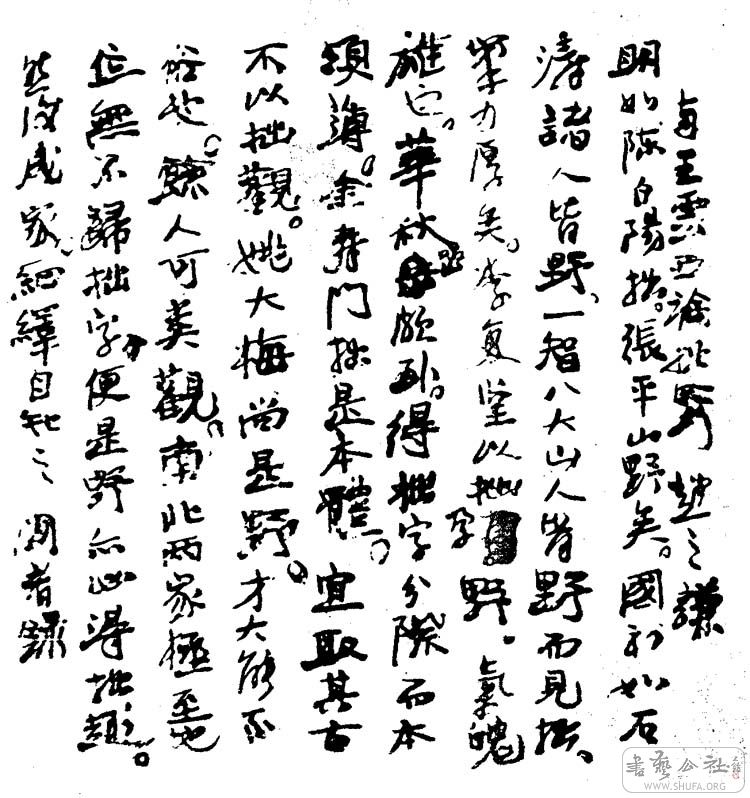 王雲西論拙野 趙之謙
明如陳白陽拙。張平山野矣。國初如石
濤諸人皆野、一智八大山人皆野而見拙、
筆力厚矣。李复堂以拙字野。氣魄
雄也。華秋岳頗到。得拙字分際而本
領薄。金壽門拙是本體。宜取其古
不以拙觀。姚大梅尚是野。才大能不
俗也。餘人可类觀。南北兩家極至也
但無不歸拙字。便是野亦必得拙趣。
然後成家。細繹自知之 閱者録
書藝公社
WWW.SHUFA.ORG